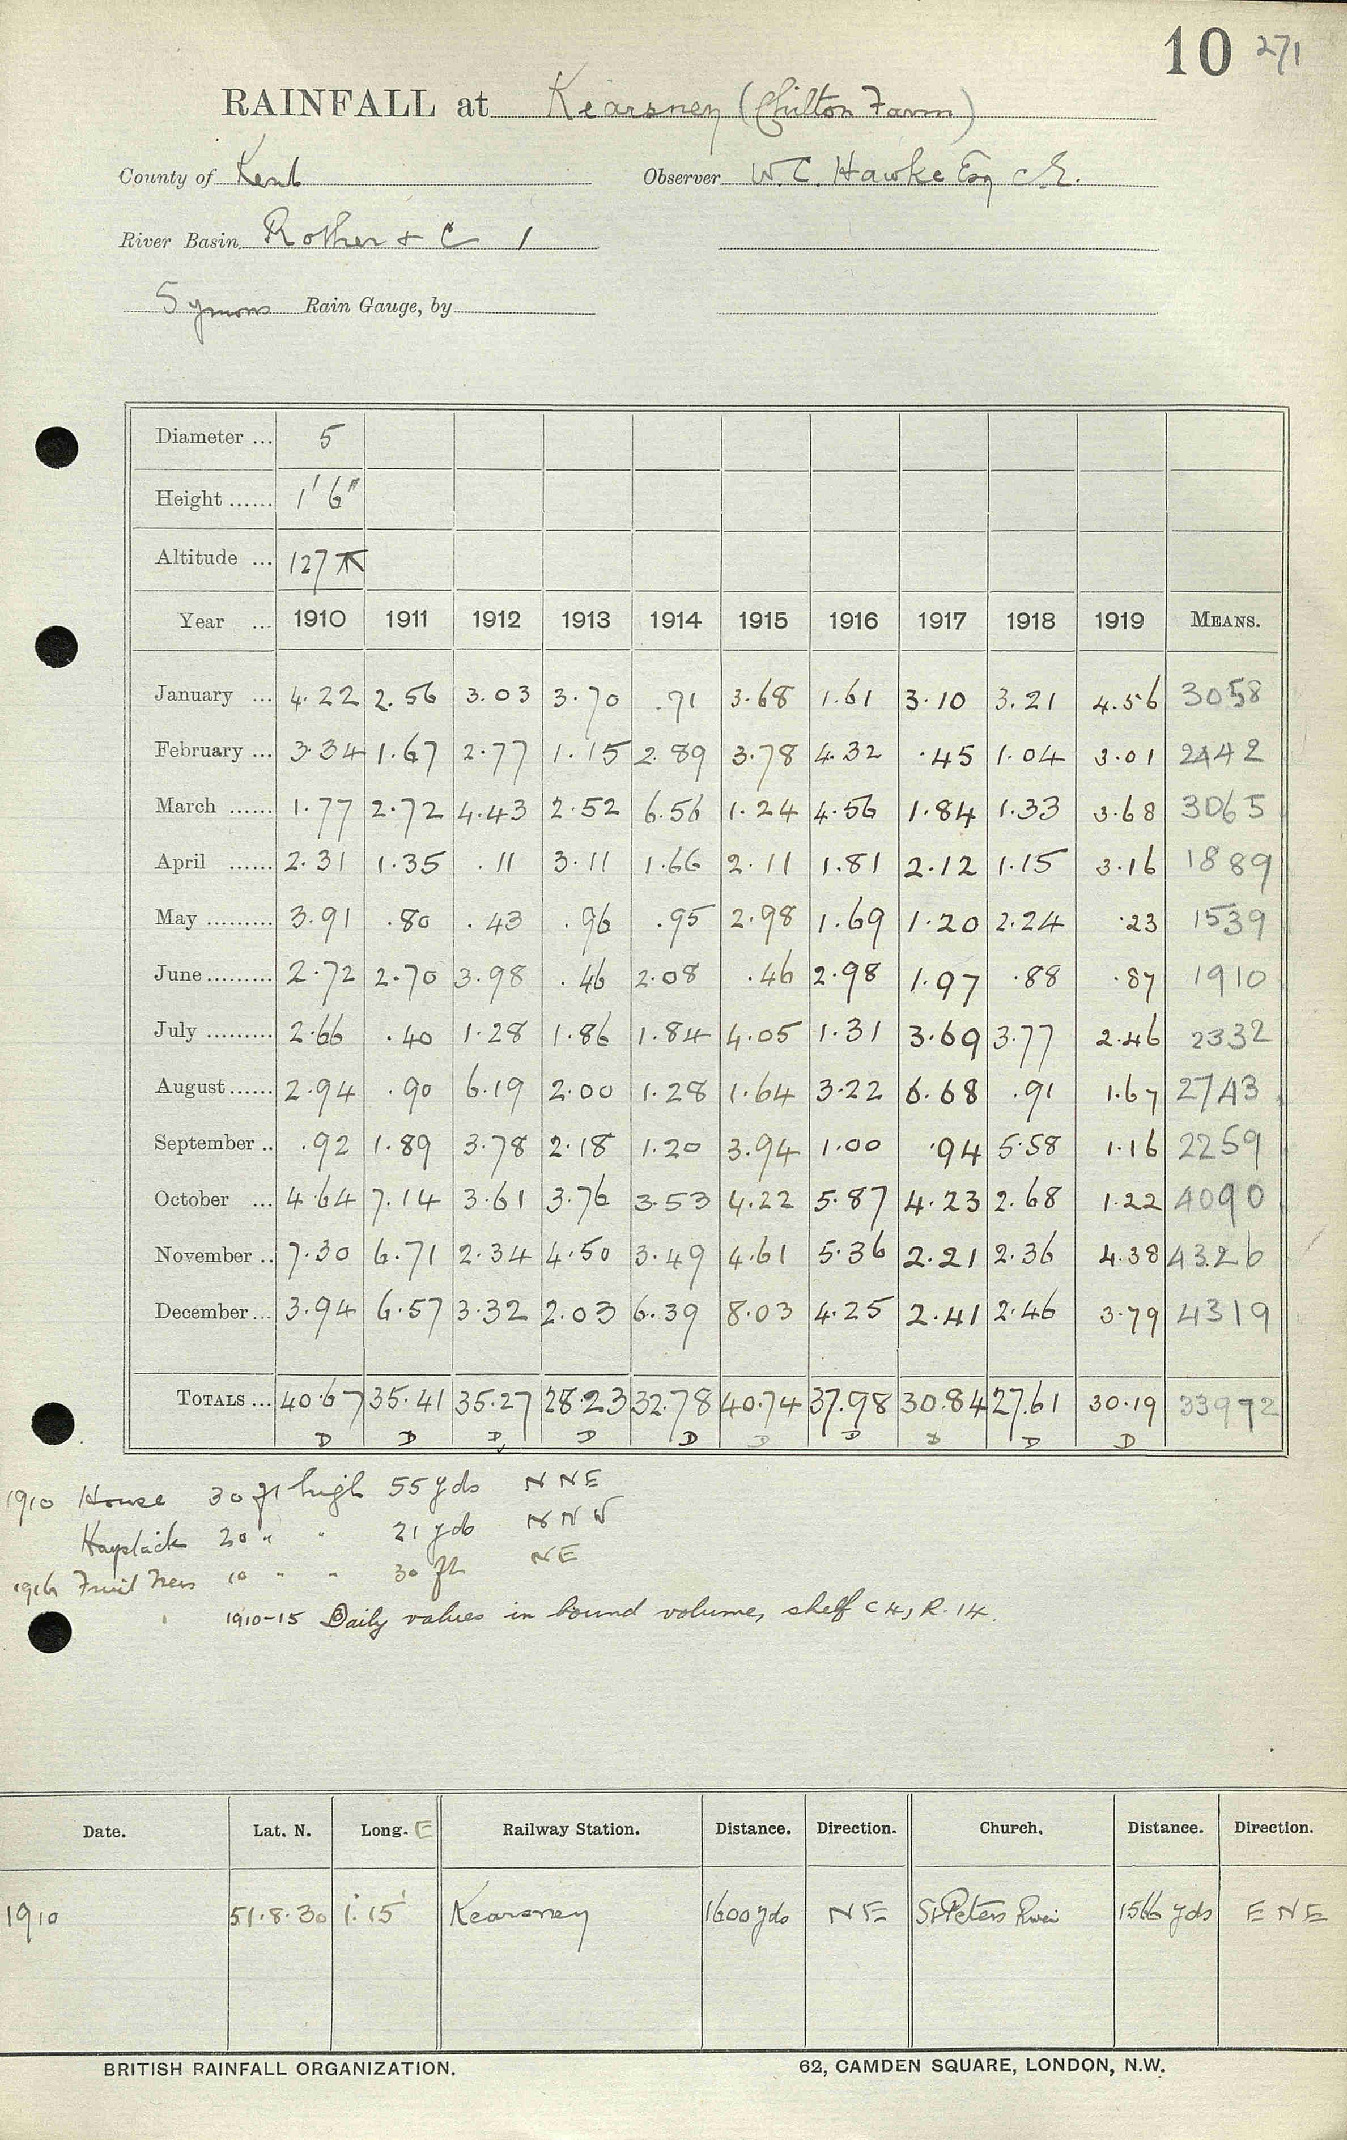 10 271
RAINFALL at Kearsney (Chilton Farm)
County of Kent Observer W.C. Hawke Esq C.E.
River Basin Rother & C 1
Symons Rain Gauge, by
Diameter ... 5
Height ...... 1' 6"
Altitude ... 127 ft
Year ... 1910 1911 1912 1913 1914 1915 1916 1917 1918 1919 MEANS.
January ... 4.22 2.56 3.03 3.70 .71 3.68 1.61 3.10 3.21 4.56 3058
February ... 3.34 1.67 2.77 1.15 2.89 3.78 4.32 .45 1.04 3.01 2442
March ...... 1.77 2.72 4.43 2.52 6.56 1.24 4.56 1.84 1.33 3.68 3065
April ...... 2.31 1.35 .11 3.11 1.66 2.11 1.81 2.12 1.15 3.16 1889
May ......... 3.91 .80 .43 .96 .95 2.98 1.69 1.20 2.24 .23 1539
June ......... 2.72 2.70 3.98 .46 2.08 .46 2.98 1.97 .88 .87 1910
July ......... 2.66 .40 1.28 1.86 1.84 4.05 1.31 3.69 3.77 2.46 2332
August ...... 2.94 .90 6.19 2.00 1.28 1.64 3.22 6.68 .91 1.67 2743
September .. .92 1.89 3.78 2.18 1.20 3.94 1.00 .94 5.58 1.16 2259
October ... 4.64 7.14 3.61 3.76 3.53 4.22 5.87 4.23 2.68 1.22 4090
November .. 7.30 6.71 2.34 4.50 3.49 4.61 5.36 2.21 2.36 4.38 4326
December ... 3.94 6.57 3.32 2.03 6.39 8.03 4.25 2.41 2.46 3.79 4319
TOTALS ... 40.67 35.41 35.27 28.23 32.78 40.74 37.98 30.84 27.61 30.19 33972
D D D D D D D D D D
1910 House 30 ft high 55 yds NNE
Haystack 20 " " 21 yds NNW
1916 Fruit Trees 10 " " 30 ft NE
1910-15 Daily values in bound volume, shelf C4, R.14.
Date. Lat. N. Long. E Railway Station. Distance. Direction. Church. Distance. Direction.
1910 51.8.30 1.15' Kearsney 1600 yds NE St Peters River 1566 yds ENE
BRITISH RAINFALL ORGANIZATION. 62, CAMDEN SQUARE, LONDON, N.W.